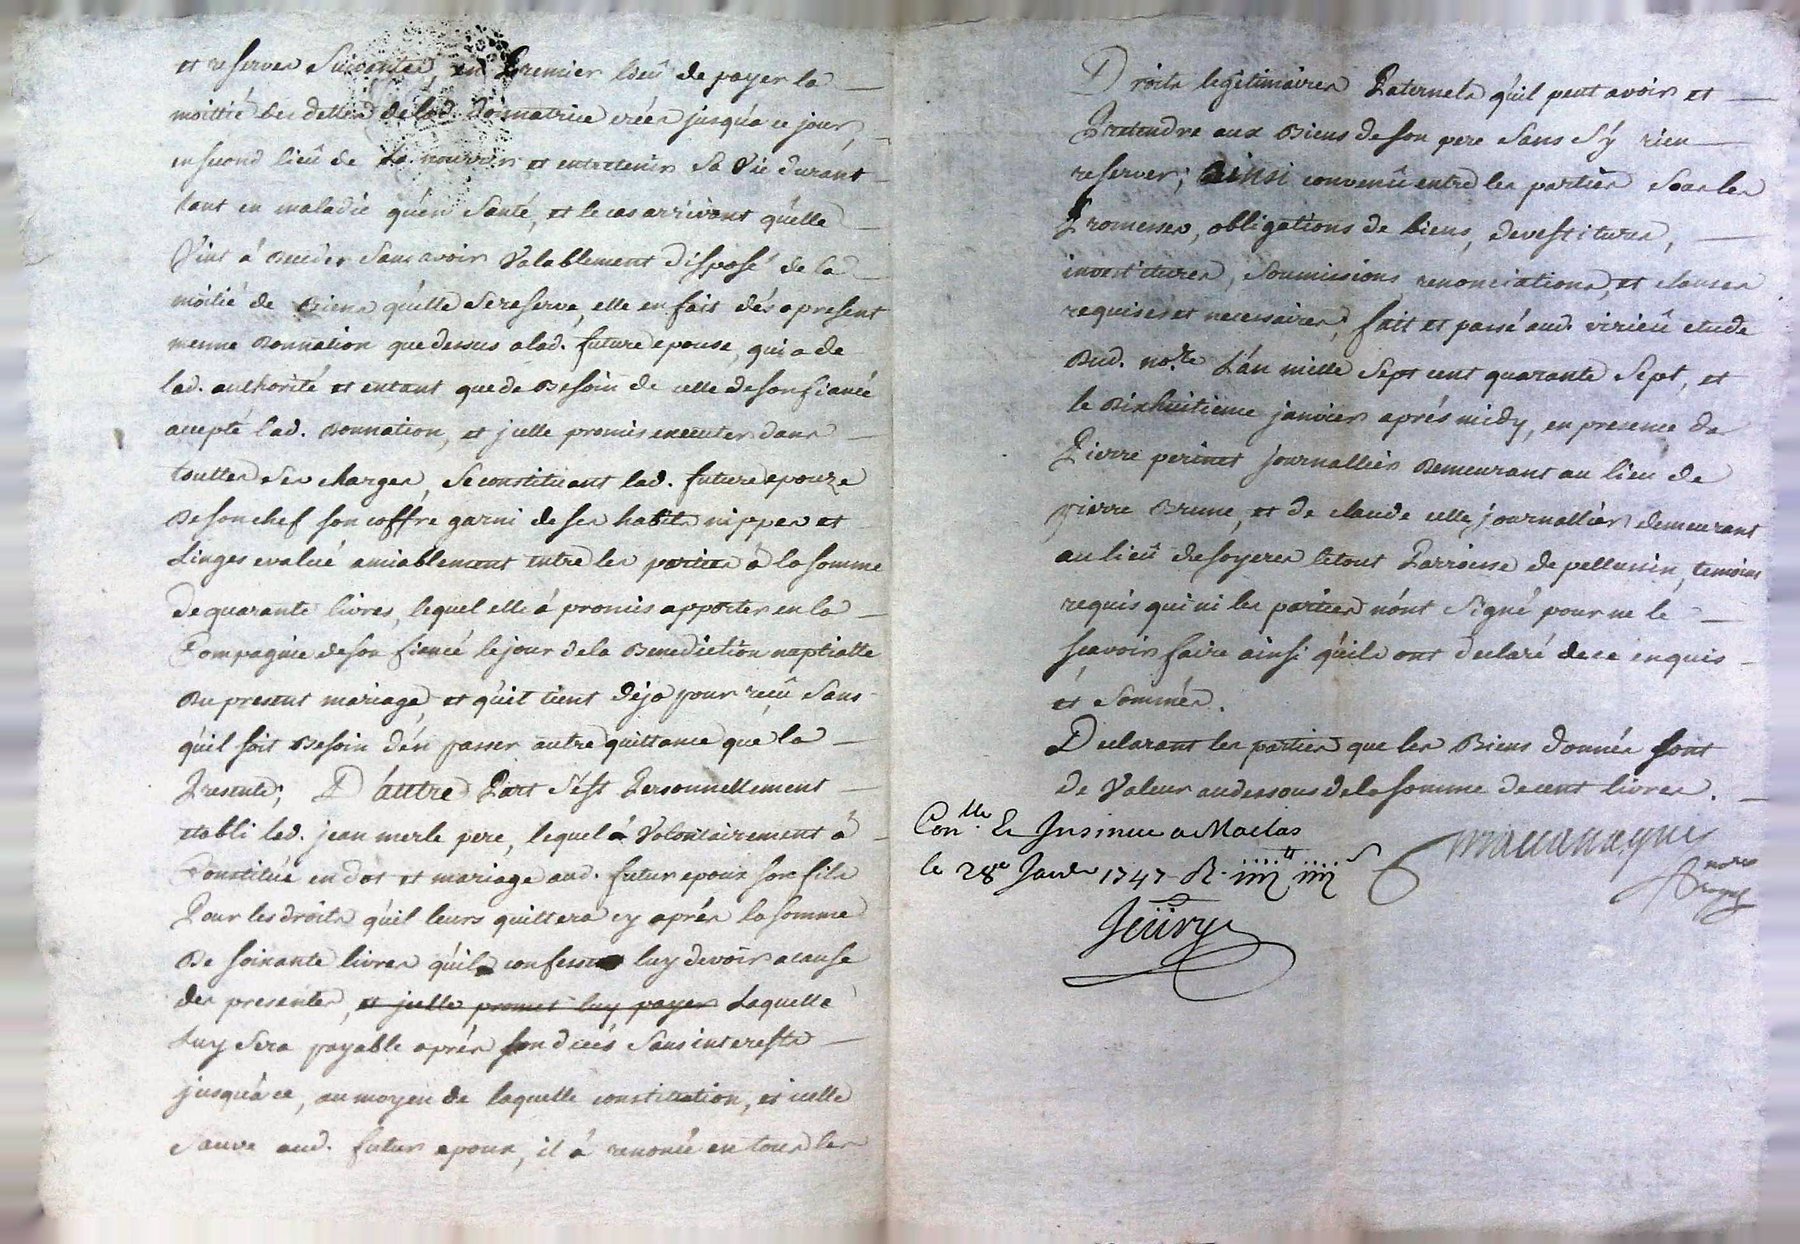 et reserves Suivantes, en Premier lieû de payer la
moittié des dettes de lad. Donnatrice créés jusqu'a ce jour,
en second lieû de La nourrir et entretenir Sa Vie durant
tant en maladie qu'en Santé, et le cas arrivant quélle
Vint à deceder Sans avoir Valablement disposé de la
moitié de Biens quélle Se reserve, elle en fait dés apresent
meme Donnation que dessus a lad. future epouse, qui a de
lad. authorité et entant que de Besoin de celle de son fiancé
accepté lad. Donnation, et jcelle promis executer dans
touttes Ses charges, Se constituant lad. future epouze
De son chef son coffre garni de ses habits nippes et
Linges evalué amiablement entre les parties à la somme
de quarante livres, lequel elle à promis apporter en la
Compagnie de son fiancé le jour de la Benediction nuptialle
Du present mariage, et quil tient déja pour reçû Sans
quil soit Besoin dén passer autre quittance que la
Presente; D'auttre Part s'ést Personnellement
etabli led. jean merle pere, lequel à Volontairement à
Constitué en dot et mariage aud. futur epoux son fils
Pour les droits qu'il leurs quittera cy aprés la somme
De soixante livres quil confesse luy devoir a cause
des presentes, et jcelle promet luy payer Laquelle
Luy Sera payable aprés son décés Sans interests
jusqu'a ce, au moyen de laquelle constitution, et icelle
Sauve aud. futur epoux, il à renoncé en tous les
Droits legitimaires Paternels qu'il peut avoir et
Pretendre aux Biens de son pere Sans S'y rien
reserver; Ainsi convenû entre les parties Sous les
Promesses, obligations de biens, devestitures,
investitures, Soumissions, renonciations, et clauses
requises et necessaires, fait et passé aud. virieû etude
Dud. nore. L'an mille Sept cent quarante Sept, et
le Dixhuitieme janvier aprés midy, en presence de
Pierre perinet journallier Demeurant au lieu de
pierre Brune, et de claude celle journallier demeurant
au lieû de soyeres le tout Parroisse de pellussin, temoins
requis qui ni les parties n'ont Signé pour ne le
sçavoir faire ainsi qu'ils ont declaré de ce enquis
et Sommés.
Declarant les parties que les Biens donnés sont
de Valeur au dessous de la somme de cent livres.
Conlle. & Insinué a Maclas
le 28e Janer 1747 R.